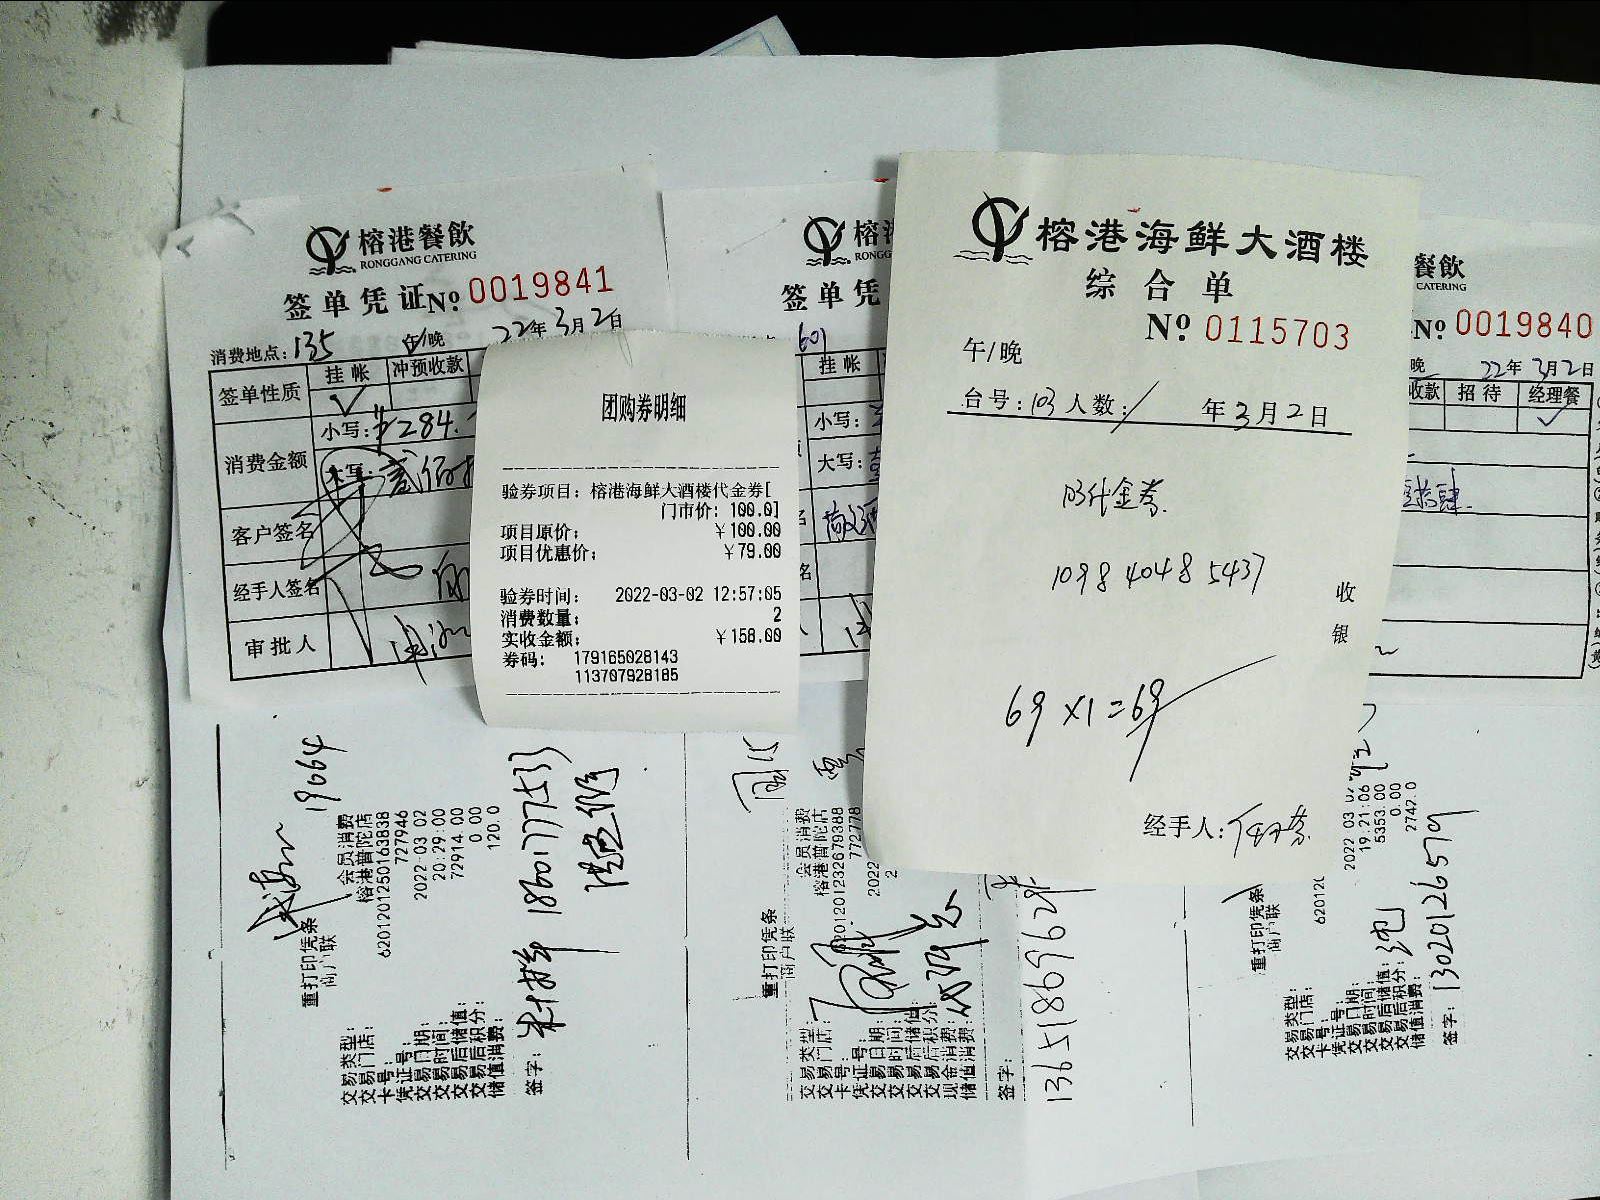 榕港餐飲
RONGGANG CATERING
签单凭证 Nº 0019841
消费地点: 135 午/晚 22年3月2日
签单性质 挂帐 冲预收款
消费金额 小写: ¥284.
大写: 贰佰
客户签名
经手人签名
审批人
团购券明细
验券项目: 榕港海鲜大酒楼代金券[
门市价: 100.0]
项目原价: ¥100.00
项目优惠价: ¥79.00
验券时间: 2022-03-02 12:57:05
消费数量: 2
实收金额: ¥158.00
券码: 179165028143
113707928185
榕港
RONGG
签单凭
601
挂帐
小写:
大写:
榕港海鲜大酒楼
综合单
Nº 0115703
午/晚
台号: 103 人数: 年3月2日
代金券
1098 4048 5437
69×1=69
收银
经手人:
餐飲
CATERING
Nº 0019840
晚 22年3月2日
收款 招待 经理餐
拾肆
19664
重打印凭条
商户联
交易类型: 会员消费
交易门店: 榕港普陀店
卡号: 6201201250163838
凭证号: 727946
交易日期: 2022 03 02
交易时间: 20:29:00
交易后储值: 72914.00
交易后积分: 0.00
储值消费: 120.0
签字:
18601777533
重打印凭条
商户联
交易类型: 会员消费
交易门店: 榕港普陀店
卡号: 6201201232679388
凭证号: 772778
交易日期: 2022
交易时间: 2
交易后储值:
交易后积分:
现金消费:
储值消费:
签字:
13651869628
重打印凭条
商户联
交易类型:
交易门店:
卡号: 620120
凭证号:
交易日期: 2022 03 0
交易时间: 19:21:06
交易后储值: 5353.00
交易后积分: 0.00
储值消费: 2742.0
签字:
13020126579